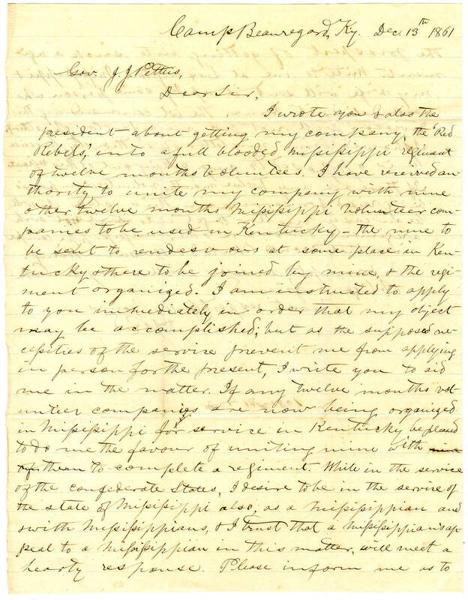 Camp Beauregard, Ky. Dec 13th 1861
Gov. J. J. Pettus,
Dear Sir,
I wrote you & also the
president about getting my company, the "Red
Rebels," into a full blooded Mississippi regiment
of twelve months volunteers. I have received au-
thority to unite my company with nine
other twelve months Mississippi Volunteer com-
panies to be used in Kentucky – the nine to
be sent to rendesvous at some place in Ken-
tucky & there to be joined by mine, & the regi-
ment organized. I am instructed to apply
to you immediately in order that my object
may be accomplished; but as the supposed ne-
cessities of the service prevent me from applying
in person for the present, I write you to aid
me in the matter. If any twelve months vol-
untier companies are now being organized
in Mississippi for service in Kentucky be pleased
to do me the favour of uniting mine with
them to complete a regiment. While in the service
of the confederate States, I desire to be in the service of
the state of Mississippi also, as a Mississippian and
with Mississippians, & I trust that a Mississippian's ap-
peal to a Mississippian in this matter, will meet a
hearty response. Please inform me as to